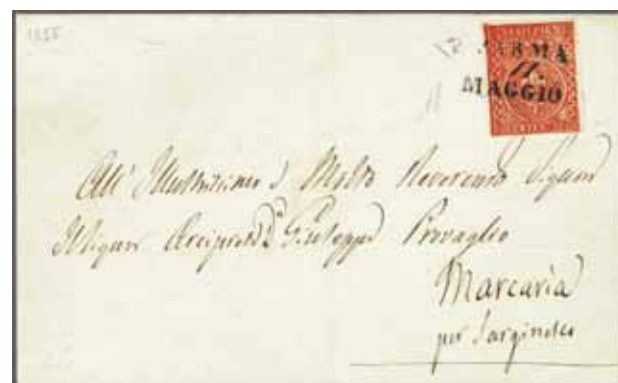 1855
PARMA
11.
MAGGIO
All' Illustrissimo e Molto Reverendo Signore
Il Signor Arciprete D. Giuseppe Provaglio
Marcaria
per